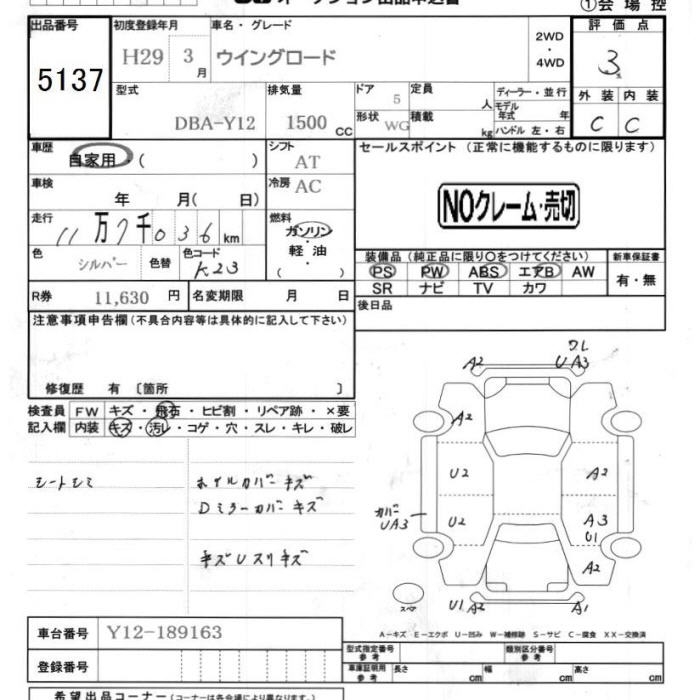 オークション出品申込書 ①会場控
出品番号 初度登録年月 車名・グレード 2WD・4WD 評価点
5137 H29 3月 ウイングロード 3
型式 排気量 ドア 定員 人 ディーラー・並行 外装 内装
DBA-Y12 1500 CC 5 モデル年式 年 C C
形状 WG 積載 kg ハンドル 左・右
車歴 自家用・( ) シフト AT セールスポイント (正常に機能するものに限ります)
車検 年 月( 日) 冷房 AC
NOクレーム・売切
走行 11万7千036km 燃料 ガソリン・軽油 ( )
色 シルバー 色替 色コード K23
装備品(純正品に限り○をつけてください) 新車保証書
PS PW ABS エアB AW 有・無
SR ナビ TV カワ
R券 11,630 円 名変期限 月 日 後日品
注意事項申告欄(不具合内容等は具体的に記入して下さい)
修復歴 有 〔箇所 〕
検査員 FW キズ・飛石・ヒビ割・リペア跡・×要
記入欄 内装 キズ・汚レ・コゲ・穴・スレ・キレ・破レ
シートシミ
ホイルカバーキズ
Dミラーカバーキズ
キズUスリキズ
ワレ
A2 UA3
A2
U2 A2
カバー UA3 U2 A3
U1
A2
スペア U1 A2 A1
A-キズ E-エクボ U-凹み W-補修跡 S-サビ C-腐食 XX-交換済
車台番号 Y12-189163
登録番号
型式指定番号 参考 類別区分番号 参考
車庫証明用 参考 長さ cm 幅 cm 高さ cm
希望出品コーナー(コーナーは各会場により異なります。)